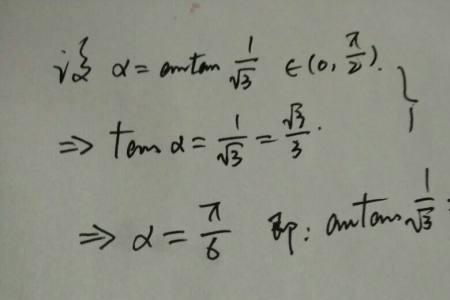 设 α = arctan 1/√3 ∈ (0, π/2).
⇒ tan α = 1/√3 = √3/3.
⇒ α = π/6 即: arctan 1/√3 =